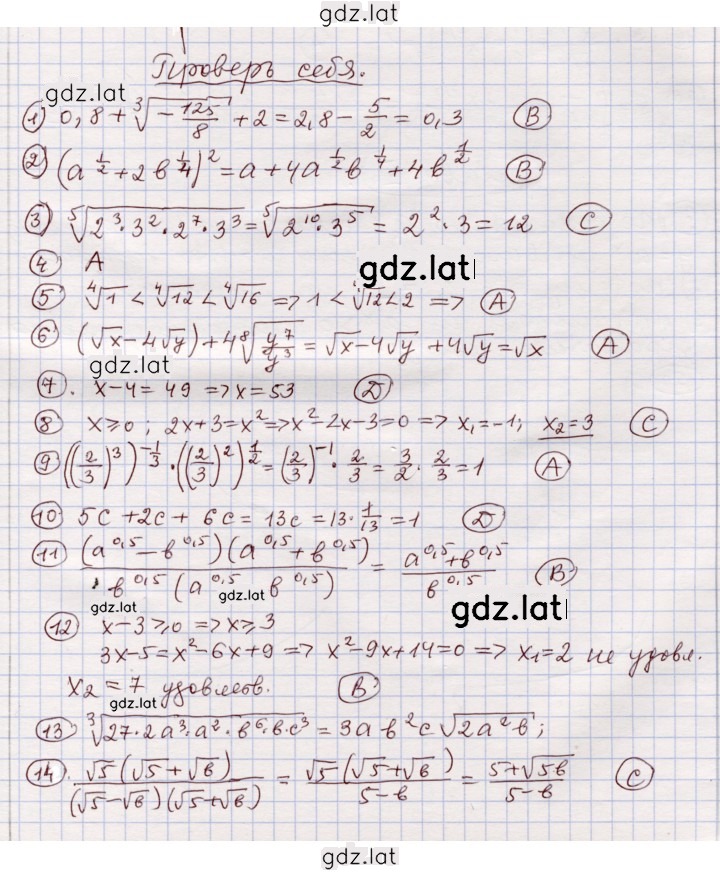 gdz.lat
Проверь себя.
gdz.lat
1) 0,8 + ∛(-125/8) + 2 = 2,8 - 5/2 = 0,3 (B)
2) (a^(1/2) + 2b^(1/4))² = a + 4a^(1/2)b^(1/4) + 4b^(1/2) (B)
3) ⁵√(2³·3²·2⁷·3³) = ⁵√(2¹⁰·3⁵) = 2²·3 = 12 (C)
4) A
gdz.lat
5) ⁴√1 < ⁴√12 < ⁴√16 => 1 < ⁴√12 < 2 => (A)
6) (√x - 4√y) + 4 ⁸√(y⁷/y³) = √x - 4√y + 4√y = √x (A)
gdz.lat
7). x - 4 = 49 => x = 53 (D)
8) x ⩾ 0; 2x + 3 = x² => x² - 2x - 3 = 0 => x₁ = -1; x₂ = 3 (C)
9) ((2/3)³)^(-1/3) · ((2/3)²)^(1/2) = (2/3)^(-1) · 2/3 = 3/2 · 2/3 = 1 (A)
10) 5c + 2c + 6c = 13c = 13 · 1/13 = 1 (D)
11) (a^0,5 - b^0,5)(a^0,5 + b^0,5) / b^0,5 (a^0,5 b^0,5) = (a^0,5 + b^0,5) / b^0,5 (B)
gdz.lat
gdz.lat
gdz.lat
12) x - 3 ⩾ 0 => x ⩾ 3
3x - 5 = x² - 6x + 9 => x² - 9x + 14 = 0 => x₁ = 2 не удовл.
x₂ = 7 удовлетв. (B)
gdz.lat
13) ∛(27·2a³·a²·b⁶·b·c³) = 3ab²c √(2a²b);
14). √5(√5 + √b) / (√5 - √b)(√5 + √b) = √5(√5 + √b) / 5 - b = 5 + √5b / 5 - b (C)
gdz.lat